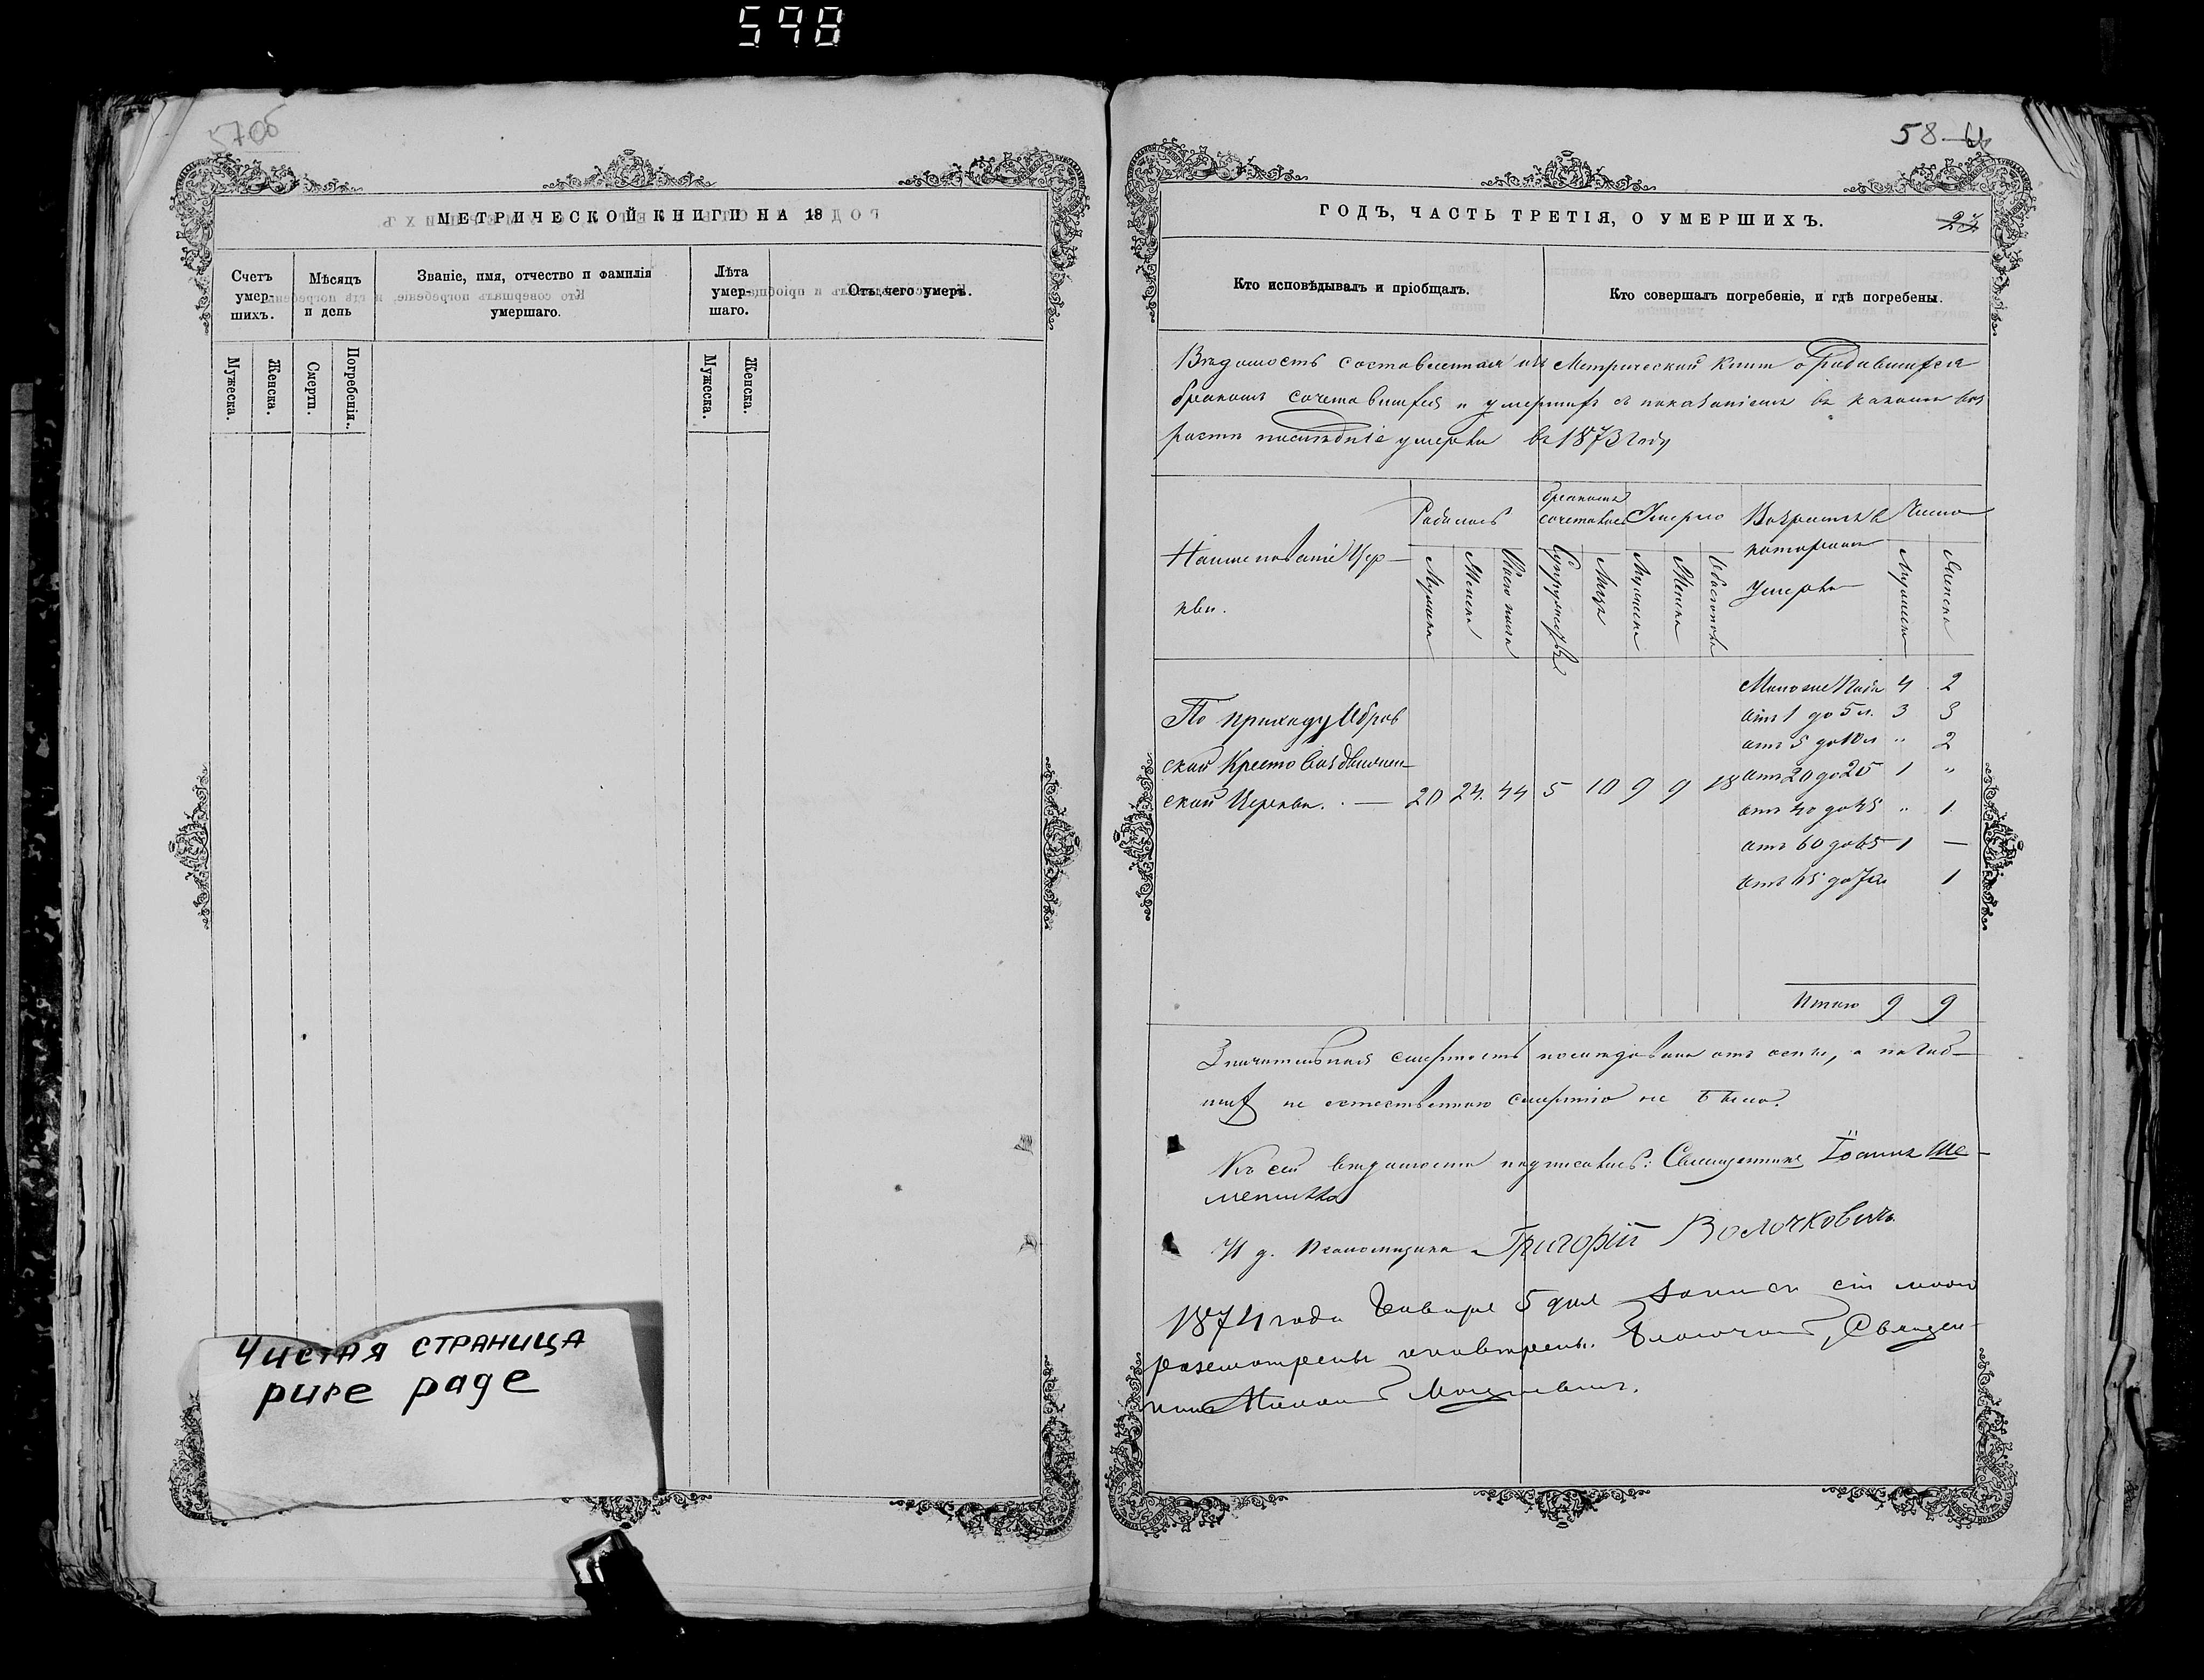 598
57об
МЕТРИЧЕСКОЙ КНИГИ НА 18
Счетъ умер-шихъ.
Мѣсяцъ и день
Званіе, имя, отчество и фамилія умершаго.
Лѣта умер-шаго.
Отъ чего умеръ.
Мужеска.
Женска.
Смерти.
Погребенія.
Мужеска.
Женска.
Чистая страница
pure page
58
23
ГОДЪ, ЧАСТЬ ТРЕТІЯ, О УМЕРШИХЪ.
Кто исповѣдывалъ и пріобщалъ.
Кто совершалъ погребеніе, и гдѣ погребены.
Вѣдомость составленная изъ Метрической Книги о Родившихся
бракомъ сочетавшихся и умершихъ съ показаніемъ въ какомъ воз
растѣ послѣдніе умерли въ 1873 году
Наименованіе Цер-
кви.
Родилось
бракомъ сочеталось
Умерло
Возрастъ въ
которомъ
умерли
Число
Мужеска
Женска
Обоего пола
Супружествъ
Лицъ
Мужеска
Женска
Обоего пола
Мужеска
Женска
По приходу
ской Крестовоздвижен-
ской Церкви. — 20 24. 44 5 10 9 9 18
Моложе года 4 2
отъ 1 до 5 л. 3 3
отъ 5 до 10 л " 2
отъ 20 до 25 1 "
отъ 40 до 45 " 1.
отъ 60 до 65 1 —
отъ 65 до 70 1
Итого 9 9
Значительная смертность послѣдовала отъ оспы, а погиб-
шихъ не естественною смертію не было.
Къ сей вѣдомости подписались: Священникъ Іоаннъ Ше-
И д. Псаломщика Григорій Волочковичъ
1874 года Января 5 дня записи сіи мною
разсмотрены и повѣрены. Благочинный, Священ-
никъ